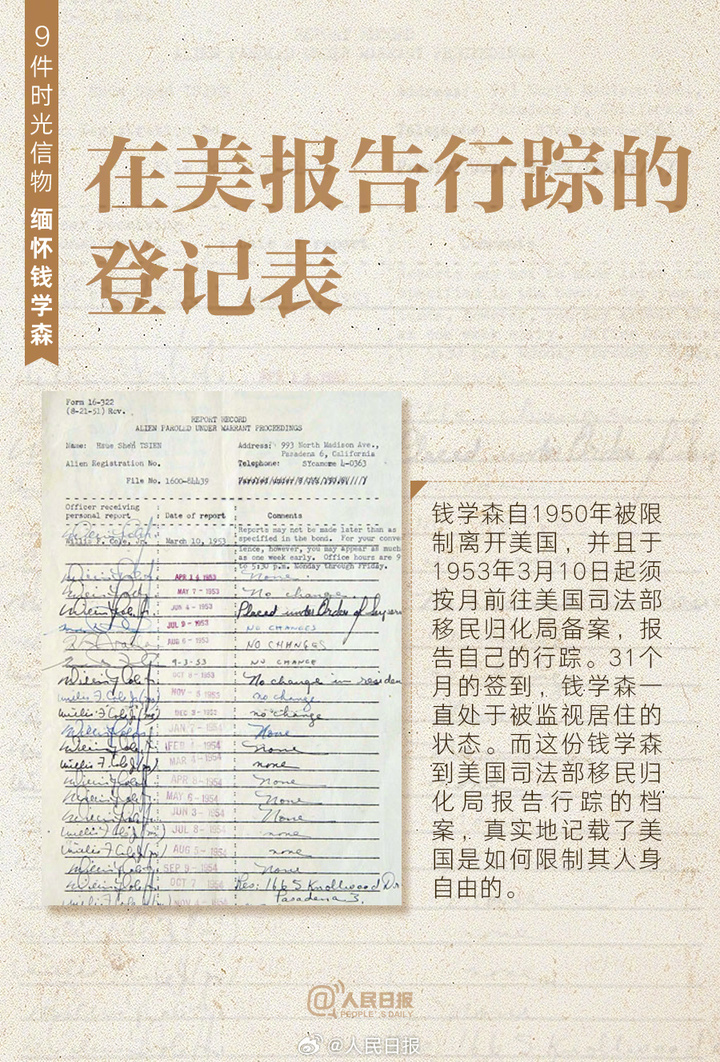 9件时光信物 缅怀钱学森
在美报告行踪的
登记表
Form 16-322
(8-21-51) Rev.
REPORT RECORD
ALIEN PAROLED UNDER WARRANT PROCEEDINGS
Name: Hsue Shen TSIEN
Address: 993 North Madison Ave.,
Pasadena 6, California
Alien Registration No.
Telephone: SYcamore 4-0363
File No. 1600-84439
Officer receiving
personal report
Date of report
Comments
Willis F. Cole, Jr.
March 10, 1953
Reports may not be made later than as
specified in the bond. For your conve
ience, however, you may appear as much
as one week early. Office hours are 9
to 5:30 p.m. Monday through Friday.
APR 14 1953 None
MAY 7 - 1953 No change
JUN 4 - 1953 Placed under Order of Supervi
JUL 9 - 1953 NO CHANGES
AUG 6 - 1953 NO CHANGES
9-3-53 NO CHANGE
OCT 8 - 1953 No change in residen
NOV - 1953 no change
DEC - 1953 no change
JAN 7 - 1954 None
FEB 4 - 1954 None
MAR 4 - 1954 none
APR 8 - 1954 None
MAY 6 - 1954 None
JUN 3 - 1954 None
JUL 8 - 1954 none
AUG 5 - 1954 none
SEP 9 - 1954 None
OCT 7 1954 Res: 166 S. Knollwood Dr
Pasadena
NOV 4 - 1954
钱学森自1950年被限
制离开美国，并且于
1953年3月10日起须
按月前往美国司法部
移民归化局备案，报
告自己的行踪。31个
月的签到，钱学森一
直处于被监视居住的
状态。而这份钱学森
到美国司法部移民归
化局报告行踪的档
案，真实地记载了美
国是如何限制其人身
自由的。
@人民日报
PEOPLE'S DAILY
@人民日报